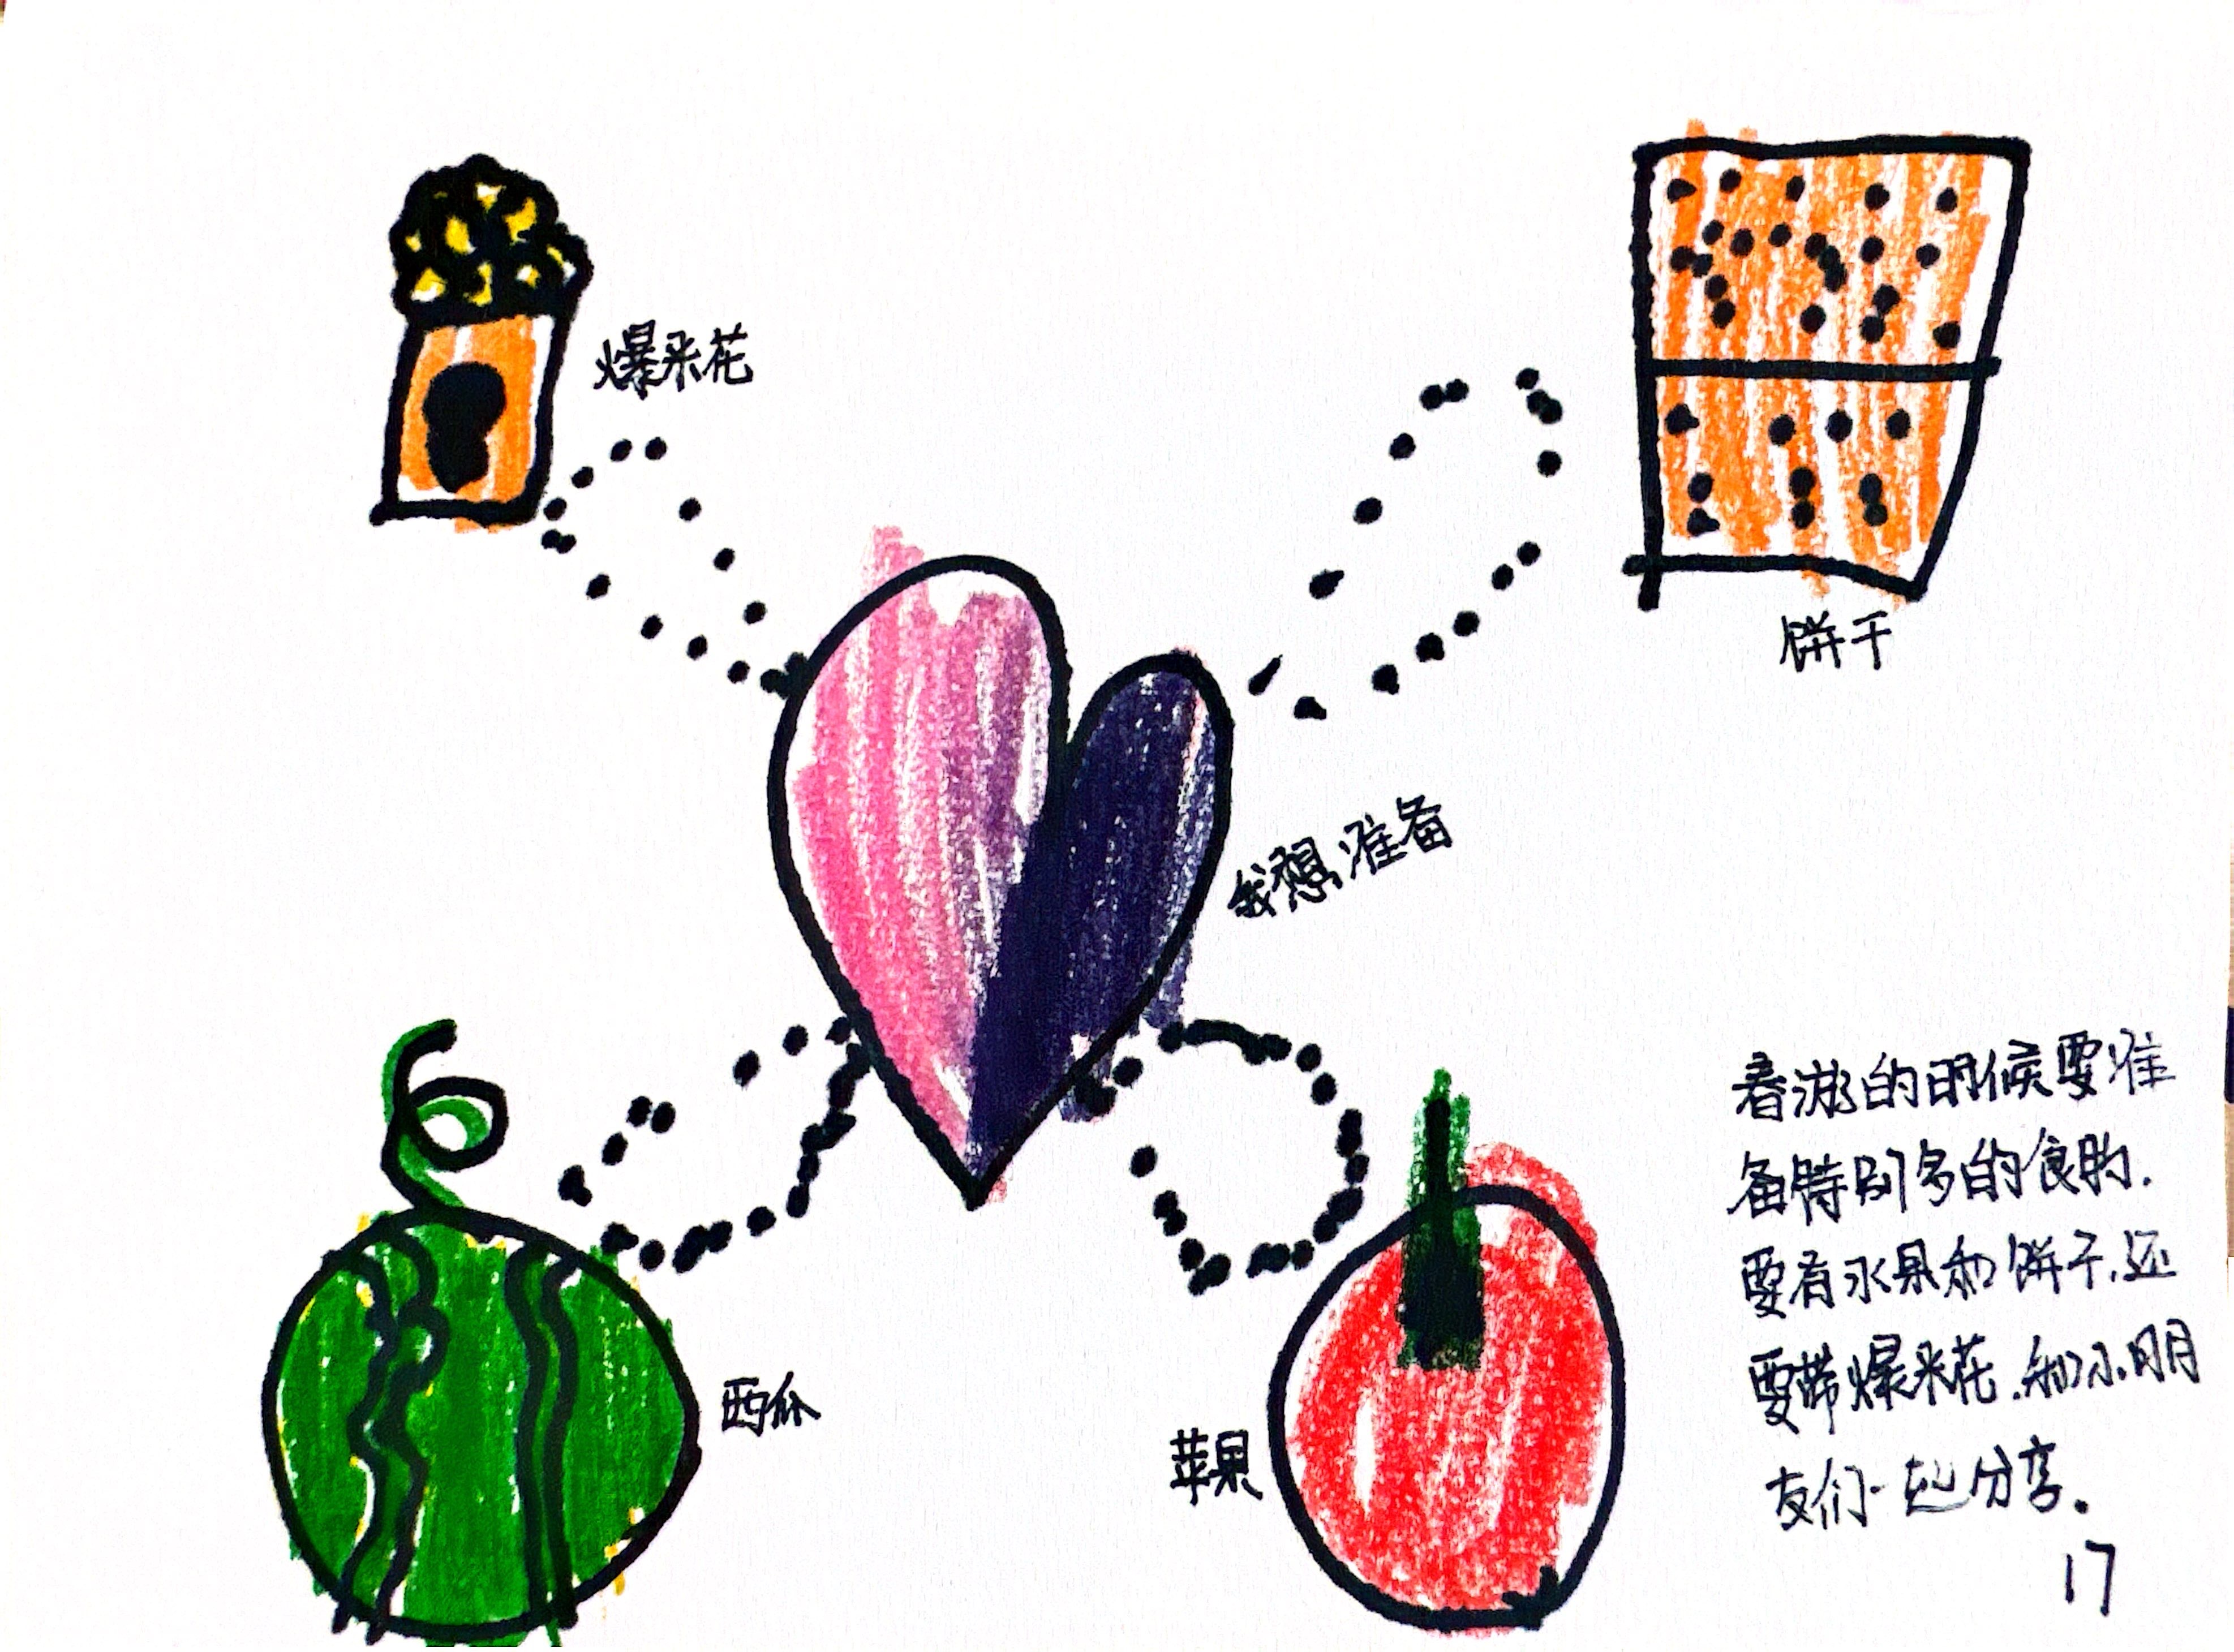 爆米花
饼干
我想准备
西瓜
苹果
春游的时候要准
备特别多的食物.
要有水果和饼干.还
要带爆米花.和小朋
友们一起分享.
17